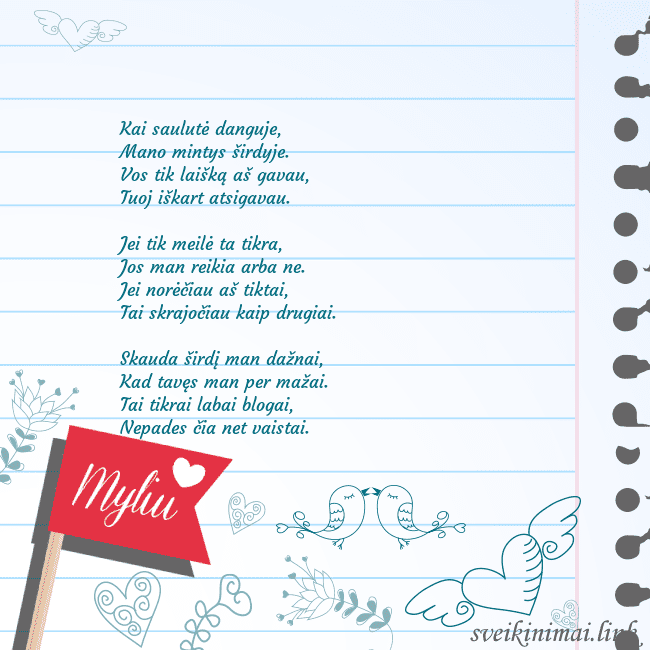 Kai saulutė danguje,
Mano mintys širdyje.
Vos tik laišką aš gavau,
Tuoj iškart atsigavau.
Jei tik meilė ta tikra,
Jos man reikia arba ne.
Jei norėčiau aš tiktai,
Tai skrajočiau kaip drugiai.
Skauda širdį man dažnai,
Kad tavęs man per mažai.
Tai tikrai labai blogai,
Nepades čia net vaistai.
Myliu
sveikinimai.link